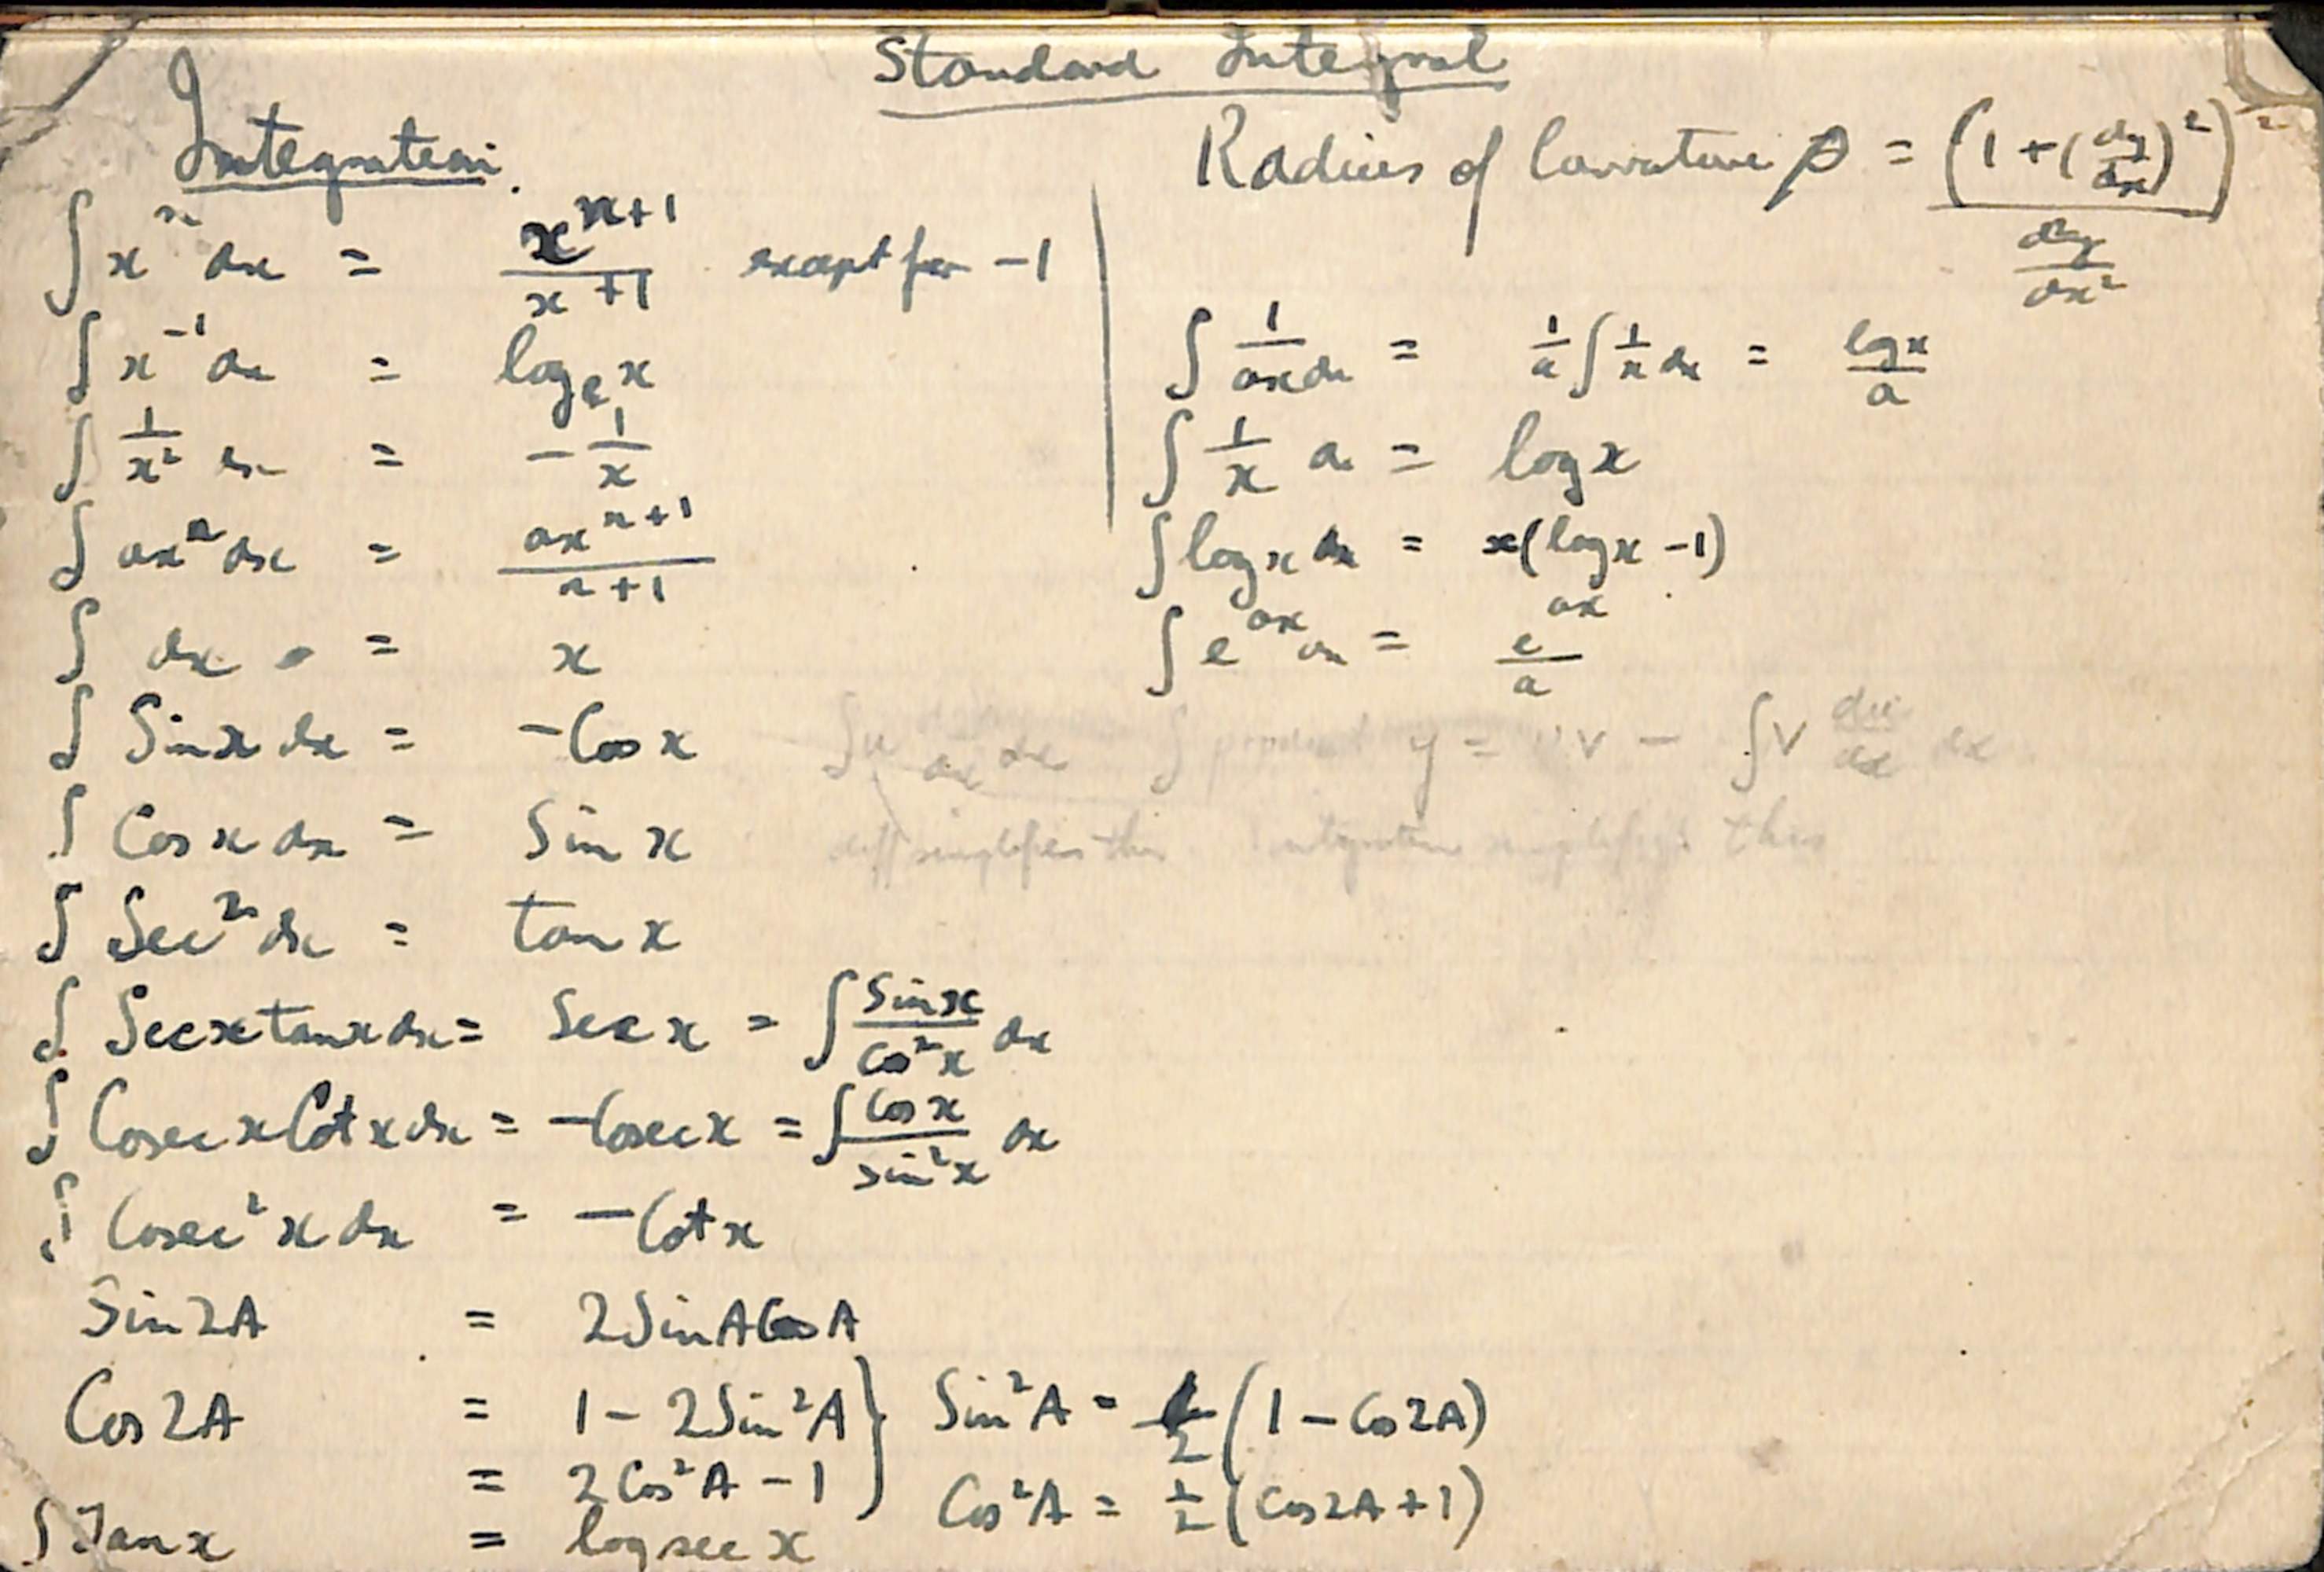 Standard Integral
Integration.
∫ xⁿ dx = x^(n+1) / x +1 except for -1
∫ x⁻¹ dx = logₑ x
∫ 1/x² dx = - 1/x
∫ axⁿ dx = ax^(n+1) / n+1
∫ dx = x
∫ Sin x dx = -Cos x
∫ Cos x dx = Sin x
∫ Sec² dx = tan x
∫ Sec x tan x dx = Sec x = ∫ Sin x / Cos² x dx
∫ Cosec x Cot x dx = -Cosec x = ∫ Cos x / Sin² x dx
∫ Cosec² x dx = - Cot x
Sin 2A = 2 Sin A Cos A
Cos 2A = 1 - 2 Sin² A } Sin² A = 1/2 (1 - Cos 2A)
= 2 Cos² A - 1 } Cos² A = 1/2 (Cos 2A + 1)
∫ Tan x = log sec x
Radius of Curvature ρ = (1 + (dy/dx)²) / d²y/dx²
∫ 1/ax dx = 1/a ∫ 1/x dx = log x / a
∫ 1/x d = log x
∫ log x dx = x(log x - 1)
∫ e^(ax) dx = e^(ax) / a
∫ u dx ∫ product y = uv - ∫ v du/dx dx
diff simplifies this integration simplifies this